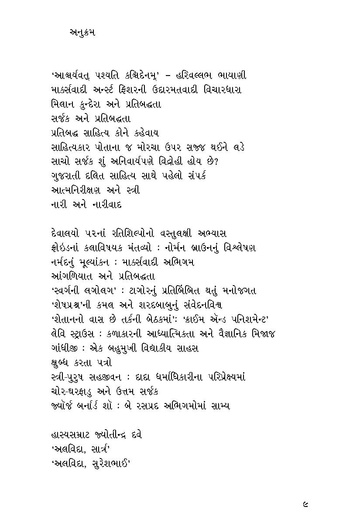 અનુક્રમ
'આશ્ચર્યવત્ પશ્યતિ કશ્ચિદેનમ્' – હરિવલ્લભ ભાયાણી
માર્ક્સવાદી અર્ન્સ્ટ ફિશરની ઉદારમતવાદી વિચારધારા
મિલાન કુન્દેરા અને પ્રતિબદ્ધતા
સર્જક અને પ્રતિબદ્ધતા
પ્રતિબદ્ધ સાહિત્ય કોને કહેવાય
સાહિત્યકાર પોતાના જ મોરચા ઉપર સજ્જ થઈને લડે
સાચો સર્જક શું અનિવાર્યપણે વિદ્રોહી હોય છે?
ગુજરાતી દલિત સાહિત્ય સાથે પહેલો સંપર્ક
આત્મનિરીક્ષણ અને સ્ત્રી
નારી અને નારીવાદ
દેવાલયો પરનાં રતિશિલ્પોનો વસ્તુલક્ષી અભ્યાસ
ફ્રોઇડનાં કલાવિષયક મંતવ્યો : નોર્મન બ્રાઉનનું વિશ્લેષણ
નર્મદનું મૂલ્યાંકન : માર્ક્સવાદી અભિગમ
આંગળિયાત અને પ્રતિબદ્ધતા
'સ્વર્ગની લગોલગ' : ટાગોરનું પ્રતિબિંબિત થતું મનોજગત
'શેષપ્રશ્ન'ની કમલ અને શરદબાબુનું સંવેદનવિશ્વ
'શેતાનનો વાસ છે તર્કની બેઠકમાં': 'ક્રાઈમ ઍન્ડ પનિશમેન્ટ'
લેવિ સ્ટ્રાઉસ : કળાકારની આધ્યાત્મિકતા અને વૈજ્ઞાનિક મિજાજ
ગાંધીજી : એક બહુમુખી વિદ્યાકીય સાહસ
ક્ષુબ્ધ કરતા પત્રો
સ્ત્રી-પુરુષ સહજીવન : દાદા ધર્માધિકારીના પરિપ્રેક્ષ્યમાં
ચોર-ઘરફાડુ અને ઉત્તમ સર્જક
જ્યૉર્જ બર્નાર્ડ શૉ : બે રસપ્રદ અભિગમોમાં સામ્ય
હાસ્યસમ્રાટ જ્યોતીન્દ્ર દવે
'અલવિદા, સાર્ત્ર'
'અલવિદા, સુરેશભાઈ'
૯